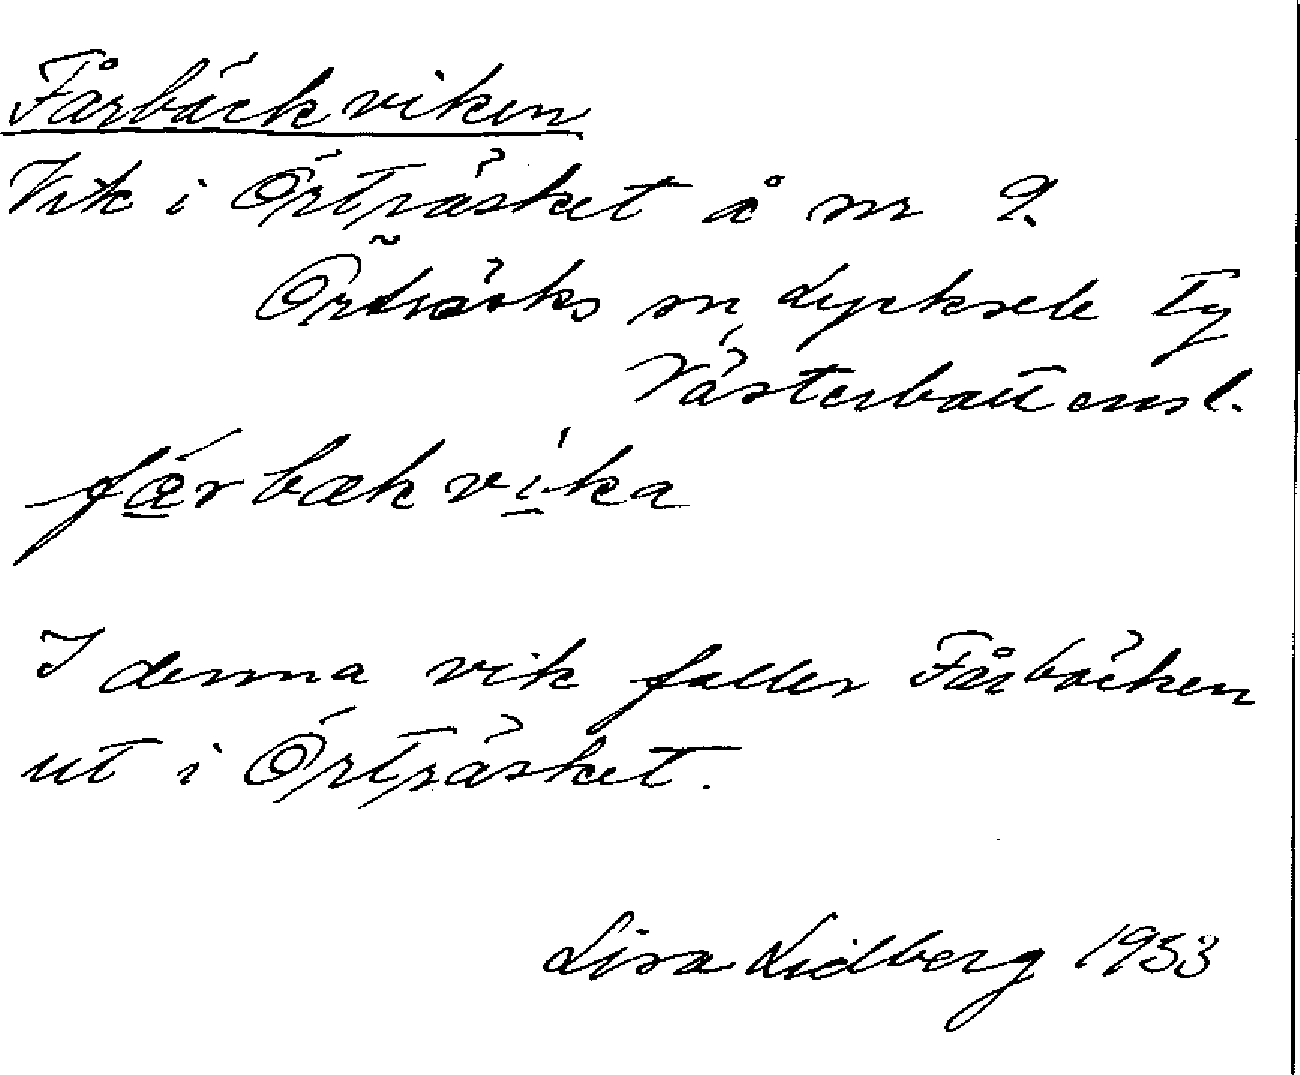 Fårbäckviken
Vik i Örträsket å nr 9.
Örträsks sn, Lycksele Tg
Västerbottensl.
fǽrbækvíka
I denna vik faller Fårbäcken
ut i Örträsket.
Lisa Lidberg 1953